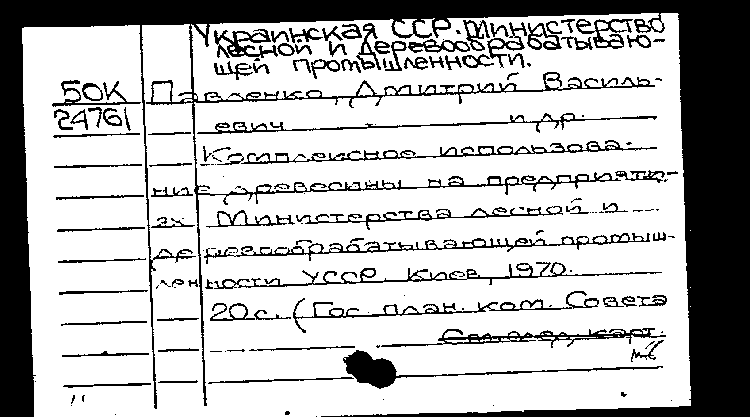 Украинская ССР. Министерство
лесной и деревообрабатываю-
щей промышленности.
50К Павленко, Дмитрий Василь-
24761 евич и др.
Комплексное использова-
ние древесины на предприяти-
ях Министерства лесной и
деревообрабатывающей промыш-
ленности УССР Киев, 1970.
20с. (Гос план. ком. Совета
карт.